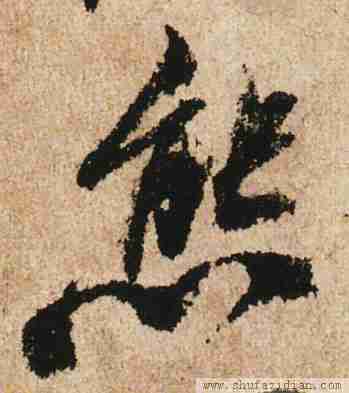 態
www.shufazidian.com